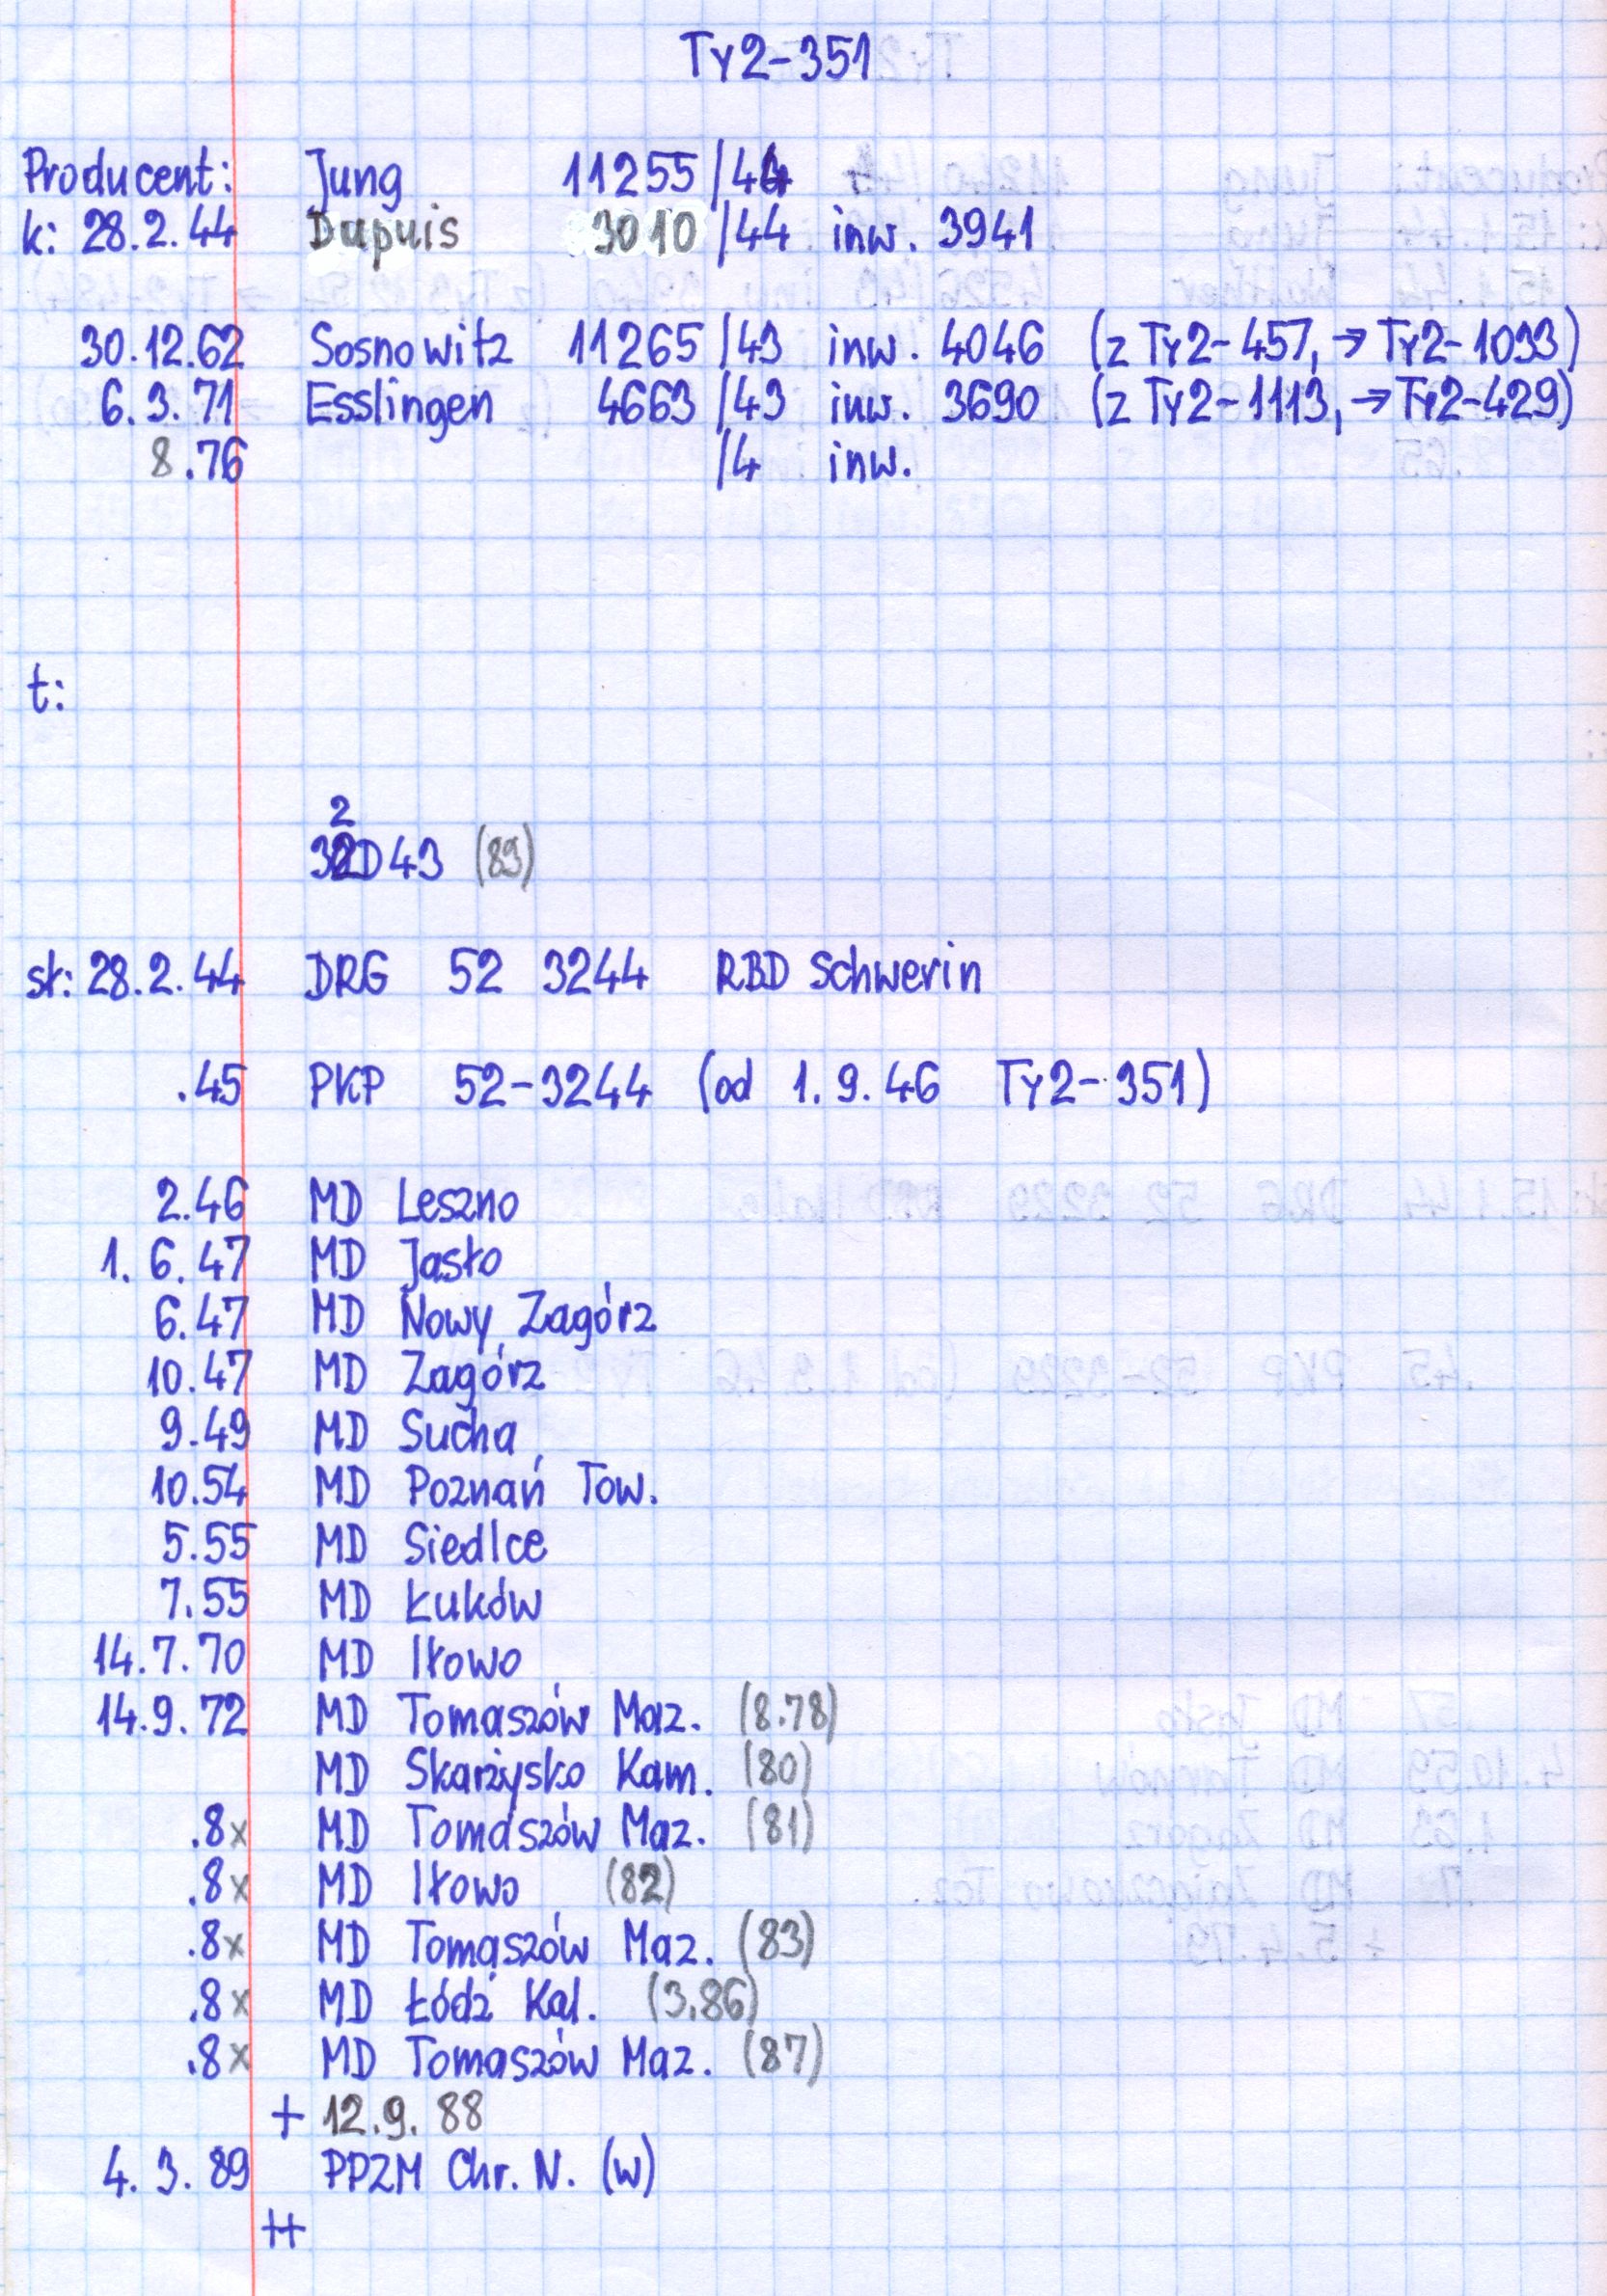 Ty2-351
Producent: Jung 11255/44
k: 28.2.44 Dupuis 3010/44 inw. 3941
30.12.62 Sosnowitz 11265/43 inw. 4046 (z Ty2-457, → Ty2-1033)
6.3.71 Esslingen 4663/43 inw. 3690 (z Ty2-1113, → Ty2-429)
8.76 /4 inw.
t:
2
32D43 (83)
st: 28.2.44 DRG 52 3244 RBD Schwerin
.45 PKP 52-3244 (od 1.9.46 Ty2-351)
2.46 MD Leszno
1.6.47 MD Jasło
6.47 MD Nowy Zagórz
10.47 MD Zagórz
9.49 MD Sucha
10.54 MD Poznań Tow.
5.55 MD Siedlce
7.55 MD Łuków
14.7.70 MD Iłowo
14.9.72 MD Tomaszów Maz. (8.78)
MD Skarżysko Kam. (80)
.8x MD Tomaszów Maz. (81)
.8x MD Iłowo (82)
.8x MD Tomaszów Maz. (83)
.8x MD Łódź Kal. (3.86)
.8x MD Tomaszów Maz. (87)
+ 12.9.88
4.3.89 PPZM Chr. N. (w)
++